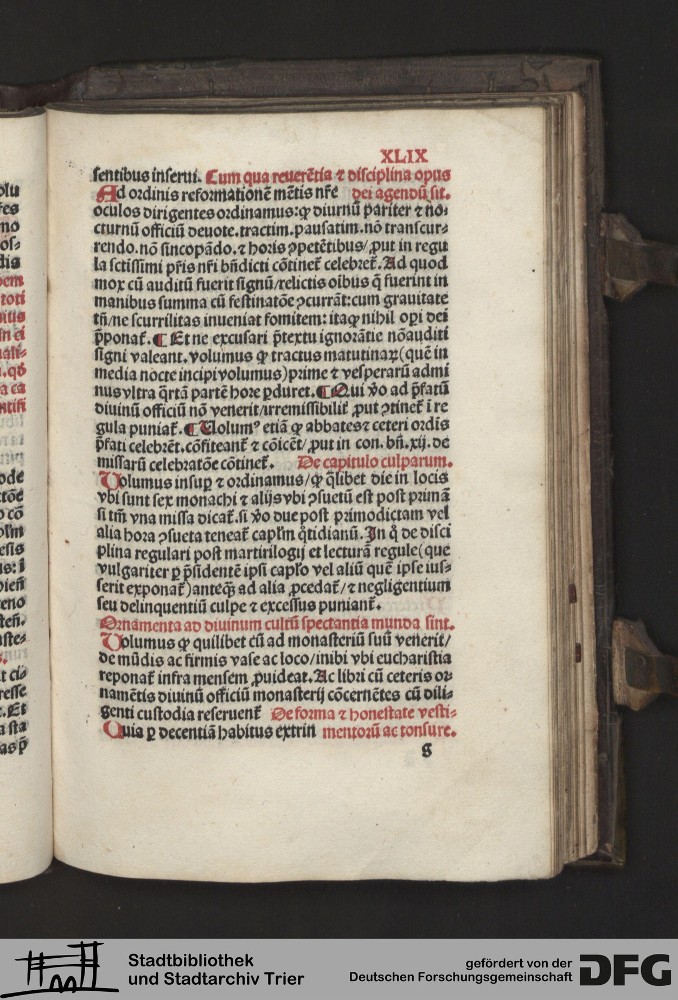 XLIX
sentibus inserui. Cum qua reuerẽtia ⁊ disciplina opus
Ad ordinis reformationẽ mẽtis nr̃e dei agendũ sit.
oculos dirigentes ordinamus: ꝙ diurnũ pariter ⁊ no-
cturnũ officiũ deuote. tractim. pausatim. nõ transcur-
rendo. nõ sincopãdo. ⁊ horis ꝯpetẽtibus/ ꝓut in regu
la sctissimi pr̃is nr̃i bñdicti cõtinet᷑ celebret᷑. Ad quod
mox cũ auditũ fuerit signũ/ relictis oĩbus q̃ fuerint in
manibus summa cũ festinatõe ꝯcurrãt: cum grauitate
tñ/ ne scurrilitas inueniat fomitem: itaꝙ nihil oꝑi dei
p̃ponat᷑. ¶ Et ne excusari p̃textu ignorãtie nõ auditi
signi valeant. volumus ꝙ tractus matutinaꝝ (quẽ in
media nocte incipi volumus) prime ⁊ vesperarũ admi
nus vltra q̃rtã partẽ hore ꝑduret. ¶ Qui v̓o ad p̃fatũ
diuinũ officiũ nõ venerit/ irremissibilit᷑ ꝓut ꝯtinet᷑ ĩ re
gula puniat᷑. ¶ Volumꝰ etiã ꝙ abbates ⁊ ceteri ordĩs
p̃fati celebrẽt. cõfiteant᷑ ⁊ cõicẽt/ ꝓut in con. bñ. xij. de
missarũ celebratõe cõtinet᷑. De capitulo culparum.
Volumus insuꝑ ⁊ ordinamus/ ꝙ q̃libet die in locis
vbi sunt sex monachi ⁊ alijs vbi ꝯsuetũ est post primã
si tm̃ vna missa dicat᷑. si v̓o due post primo dictam vel
alia hora ꝯsueta teneat᷑ capl̃m q̃tidianũ. In q̃ de disci
plina regulari post martirilogij et lecturã regule (que
vulgariter ꝑ p̃sidentẽ ipsi capl̃o vel aliũ quẽ ipse ius-
serit exponat᷑) anteq̃ȝ ad alia ꝓcedat᷑/ ⁊ negligentium
seu delinquentiũ culpe ⁊ excessus puniant᷑.
Ornamenta ad diuinum cultũ spectantia munda sint.
Volumus ꝙ quilibet cũ ad monasteriũ suũ venerit/
de mũdis ac firmis vase ac loco/ inibi vbi eucharistia
reponat᷑ infra mensem ꝓuideat. Ac libri cũ ceteris or-
namẽtis diuinũ officiũ monasterij cõcernẽtes cũ dili-
genti custodia reseruent᷑ De forma ⁊ honestate vesti-
Quia ꝑ decentiã habitus extrin mentorũ ac tonsure.
g
Stadtbibliothek
und Stadtarchiv Trier
gefördert von der
Deutschen Forschungsgemeinschaft
DFG